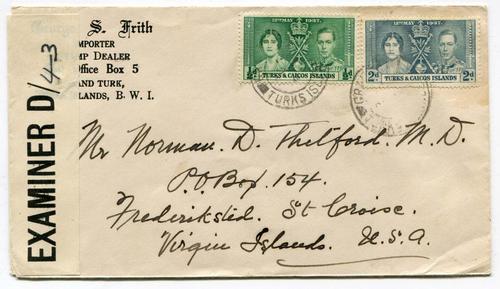 S. Frith
MPORTER
MP DEALER
Office Box 5
AND TURK,
LANDS, B. W. I.
EXAMINER D/4-3
12TH MAY 1937.
½d TURKS & CAICOS ISLANDS ½d
12TH MAY 1937.
2d TURKS & CAICOS ISLANDS 2d
TURKS IS
GRA
Mr Norman. D. Thelford. M. D.
P.O. Box 154.
Frederiksted. St Croise.
Virgin Islands. U.S.A.